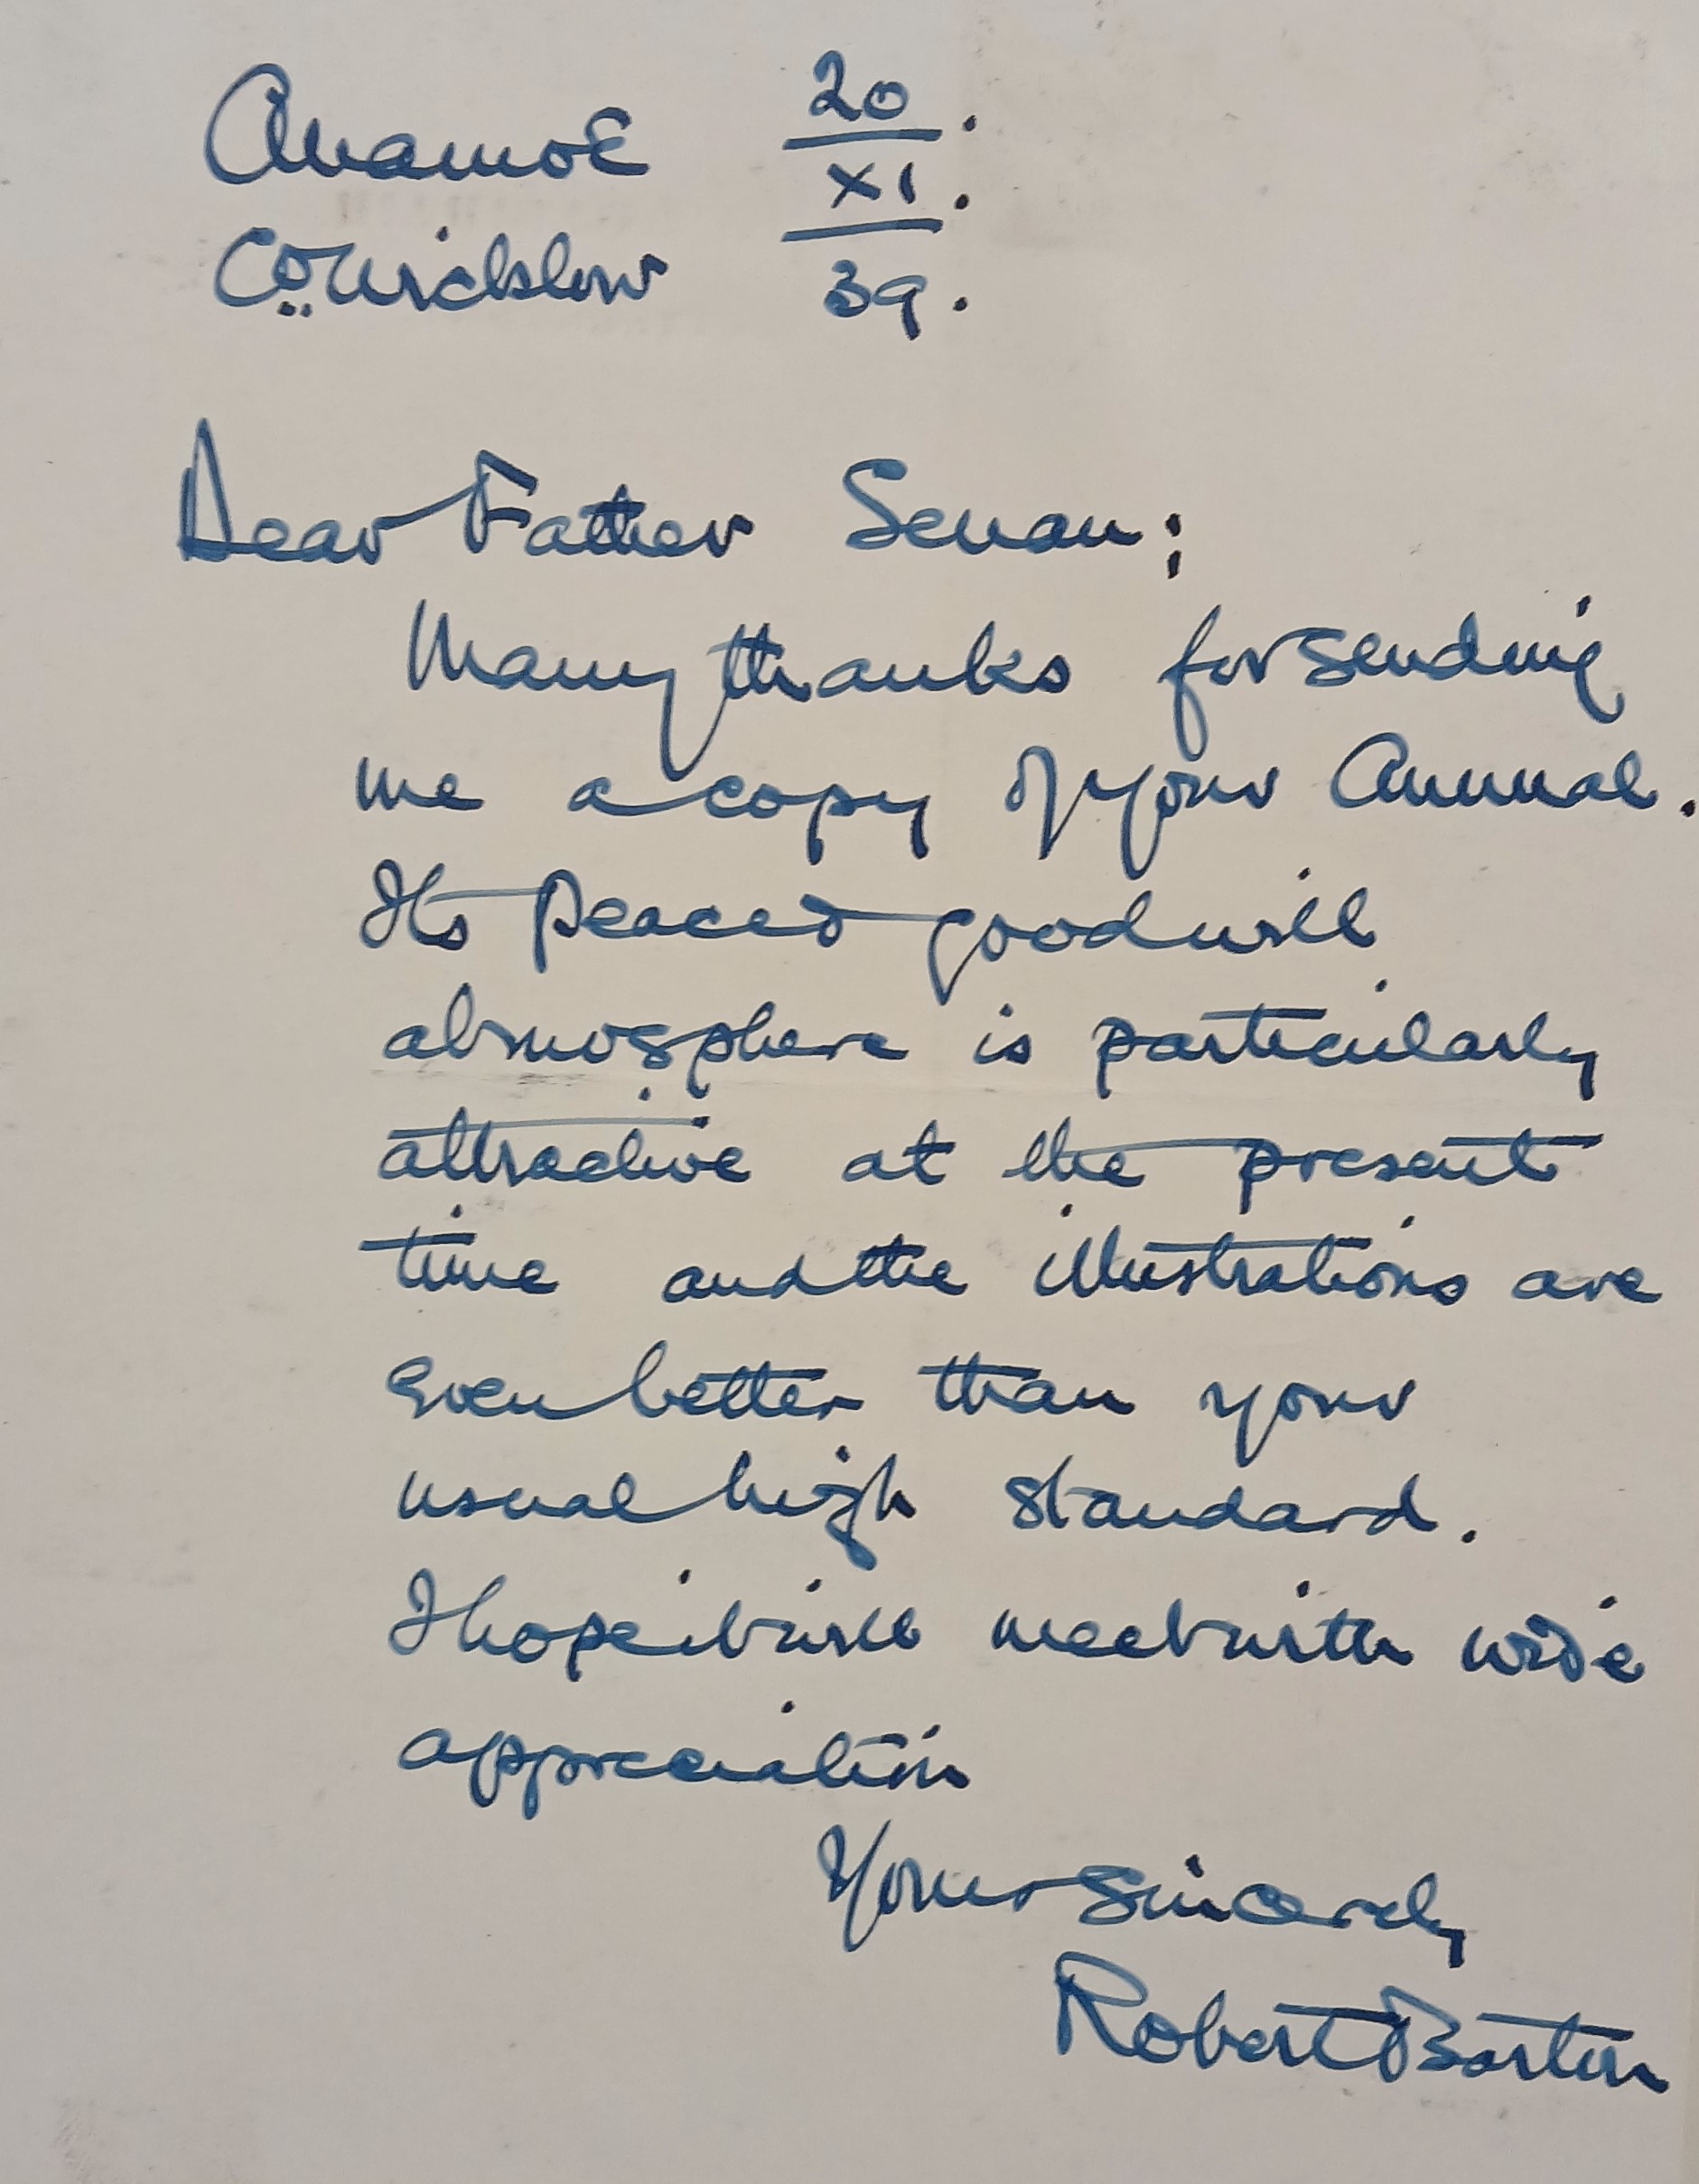 Anamoe 20
XI
Co Wicklow 39.
Dear Father Senan:
Many thanks for sending
me a copy of your Annual.
Its peace & goodwill
atmosphere is particularly
attractive at the present
time and the illustrations are
even better than your
usual high standard.
I hope it will meet with wide
appreciation
Yours sincerely
Robert Barton